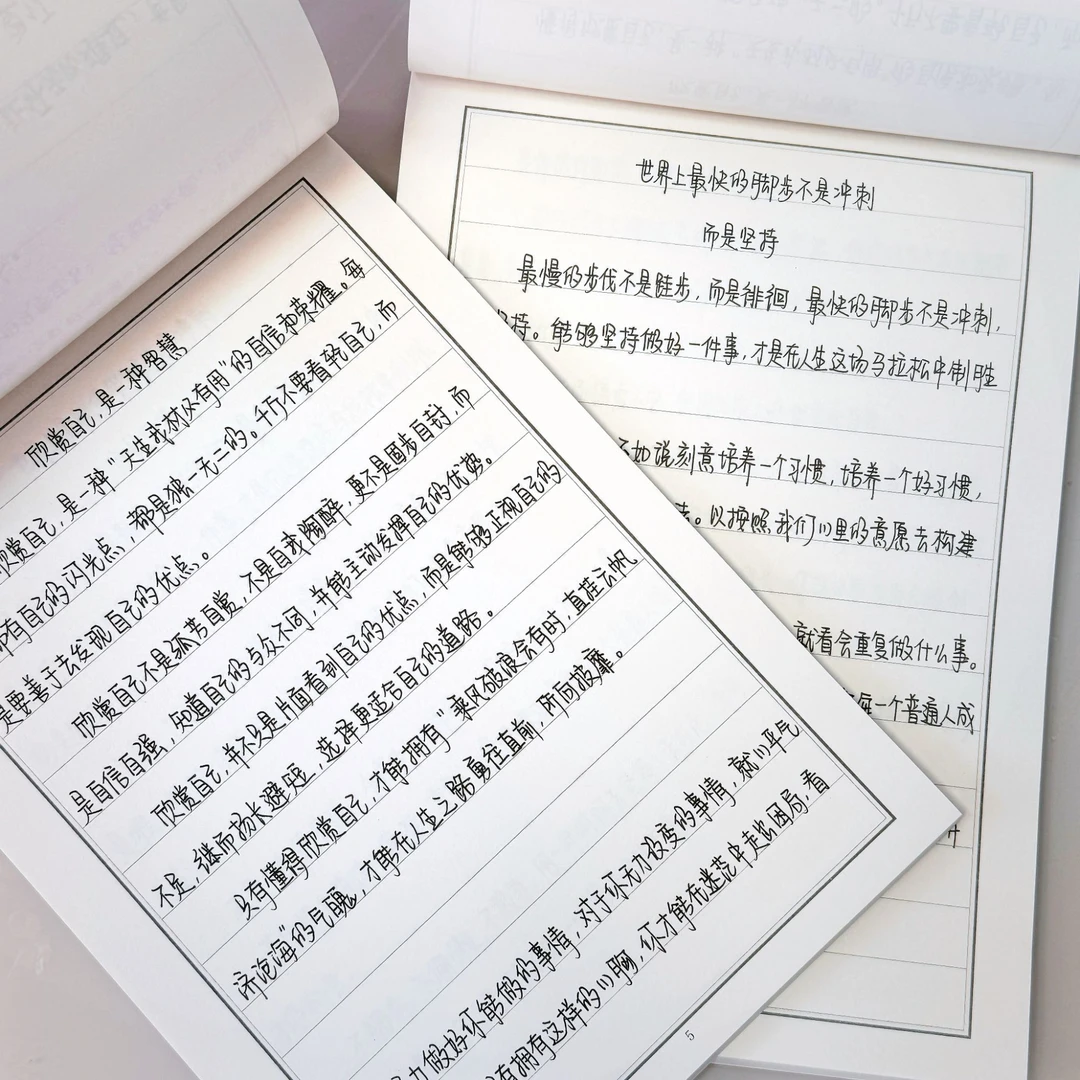 欣赏自己,是一种智慧
欣赏自己,是一种"天生我材必有用"的自信和荣耀。每
都有自己的闪光点,都是独一无二的。千万不要看轻自己,而
是要善于去发现自己的优点。
欣赏自己不是孤芳自赏,不是自我陶醉,更不是固步自封,而
是自信自强,知道自己的与众不同,并能主动发挥自己的优势。
欣赏自己,并不只是片面看到自己的优点,而是能够正视自己的
不足,继而扬长避短,选择更适合自己的道路。
只有懂得欣赏自己,才能拥有"乘风破浪会有时,直挂云帆
济沧海"的气魄,才能在人生之路勇往直前,所向披靡。
力做好你能做的事情,对于你无力改变的事情,就心平气
有拥有这样的心胸,你才能在迷茫中走出困局,看
5
世界上最快的脚步不是冲刺
而是坚持
最慢的步伐不是跬步,而是徘徊,最快的脚步不是冲刺,
坚持。能够坚持做好一件事,才是在人生这场马拉松中制胜
不如说刻意培养一个习惯,培养一个好习惯,
。以按照我们心里的意愿去构建
就看会重复做什么事。
每一个普通人成